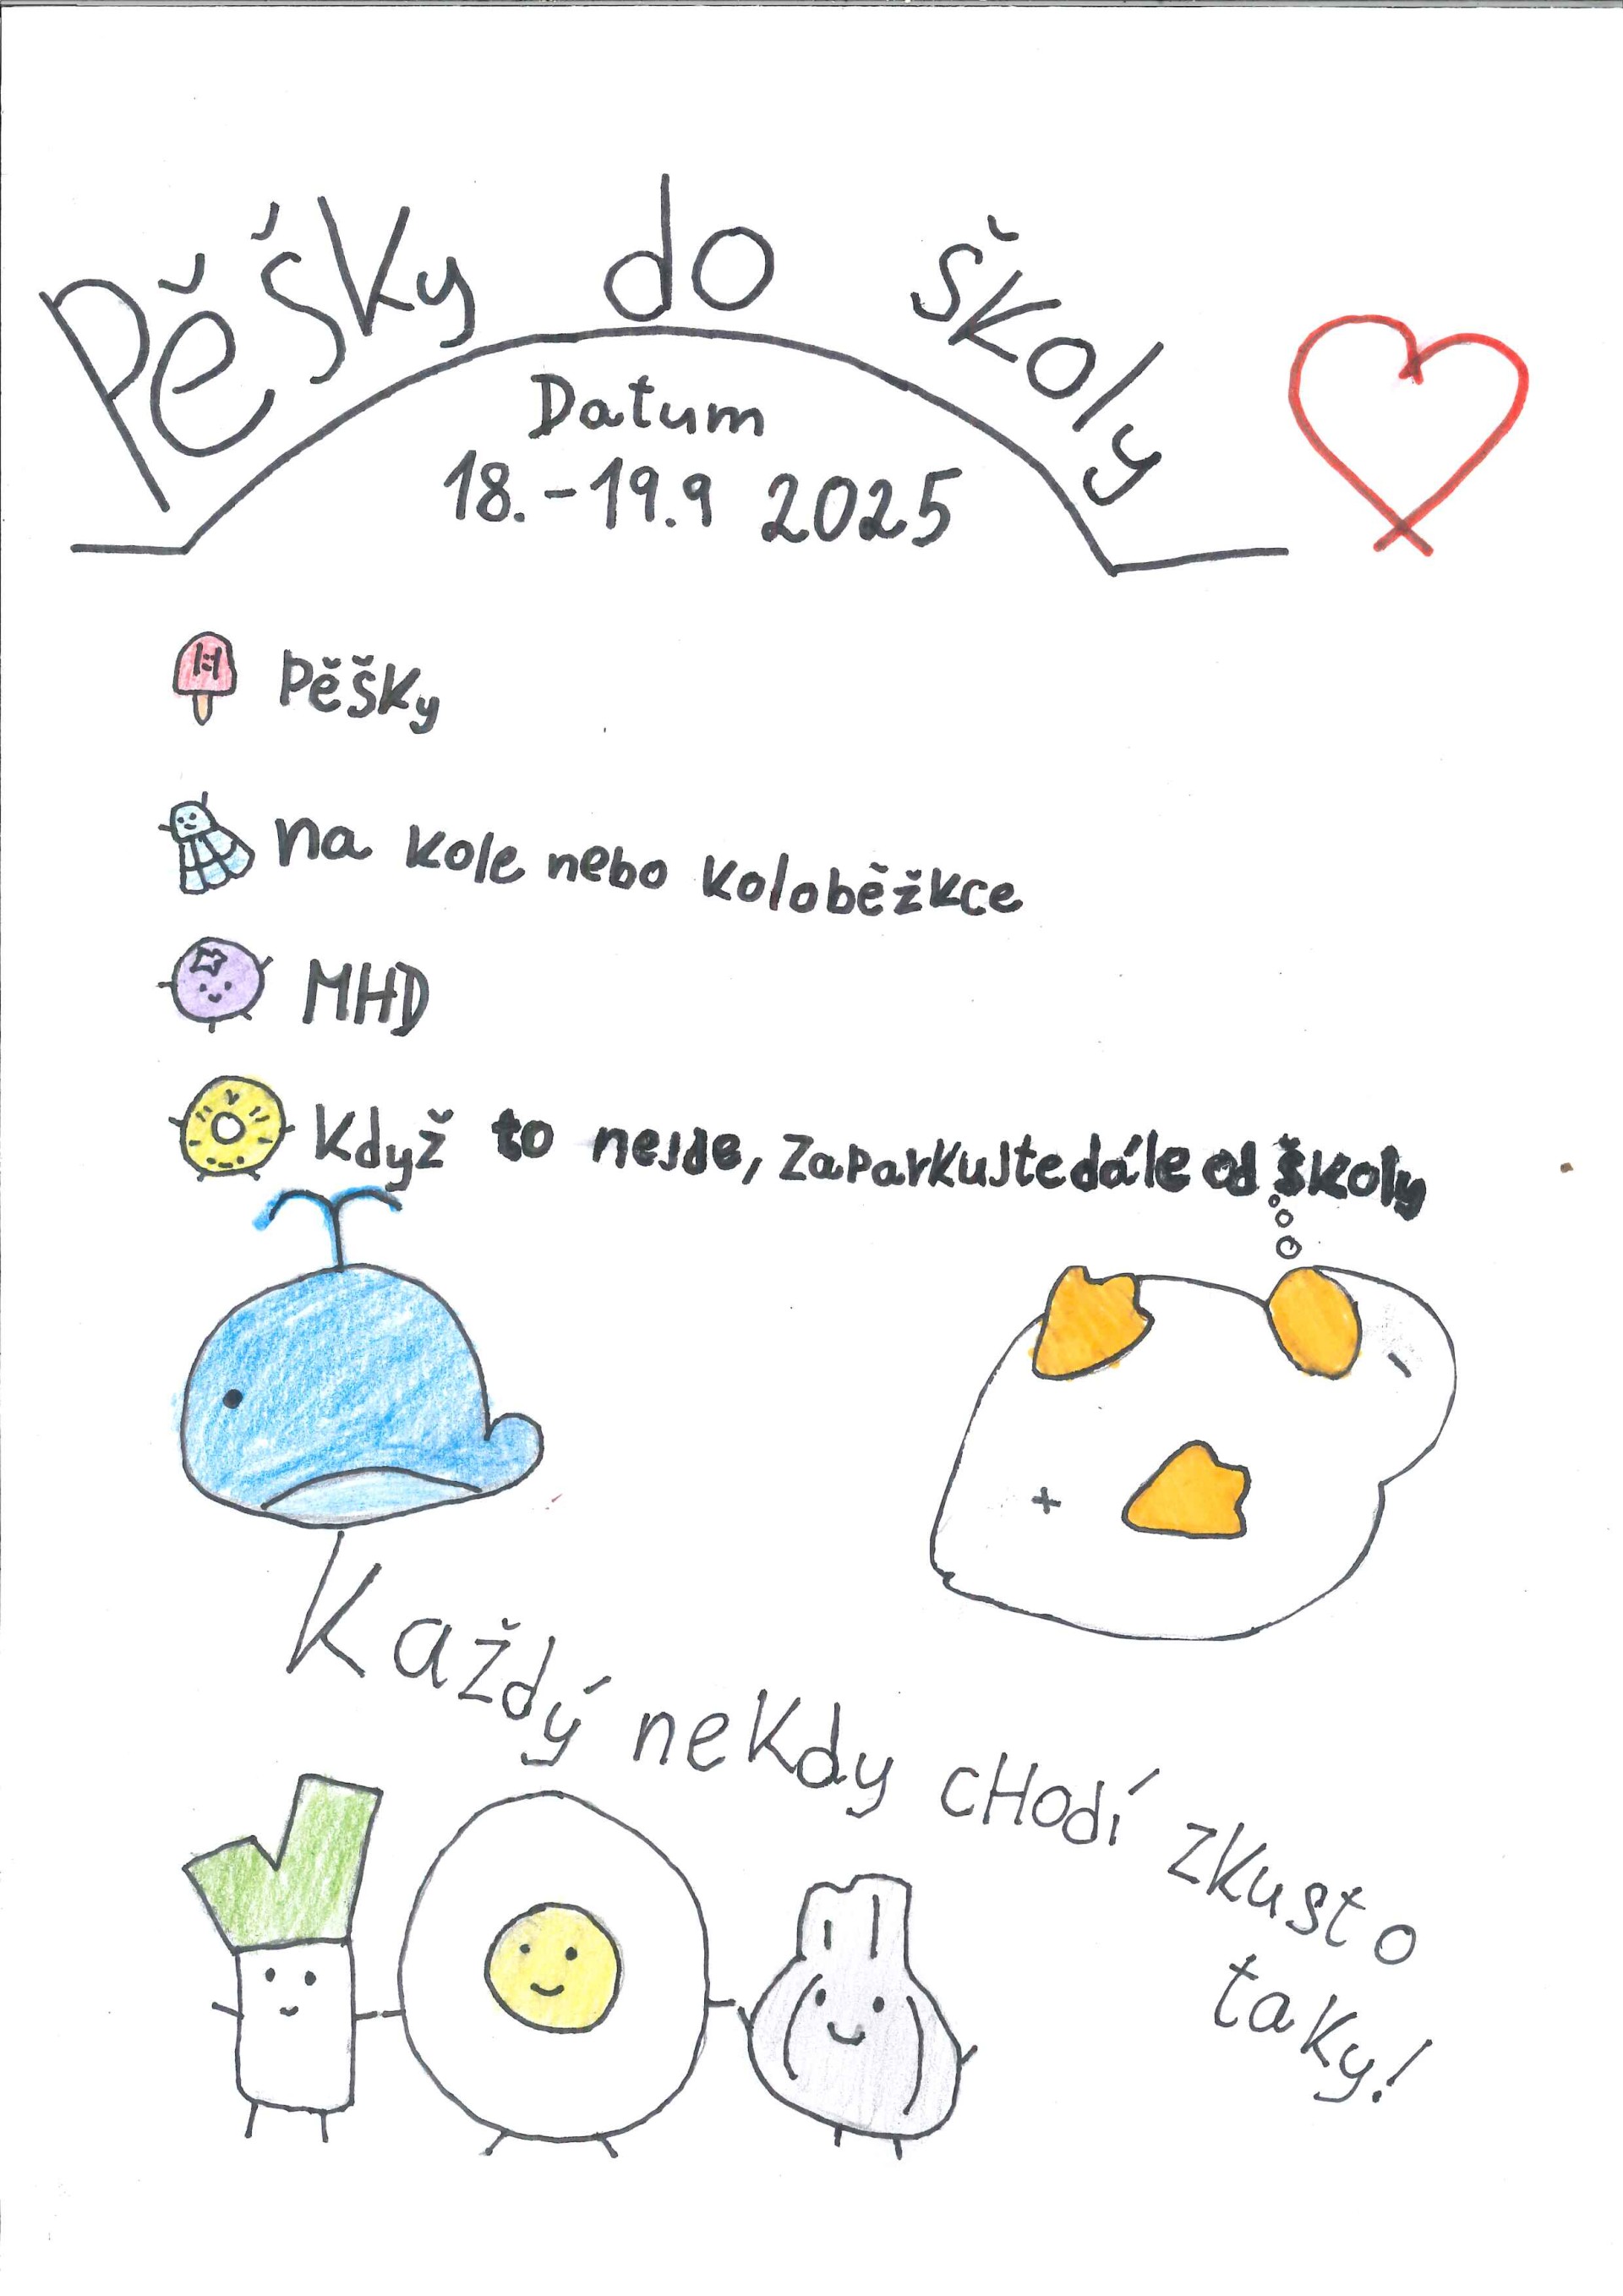 Pěšky do školy
Datum
18.-19.9 2025
Pěšky
na kole nebo koloběžkce
MHD
Když to nejde, zaparkujte dále od školy
Každý nekdy cHodí zkus to
taky!